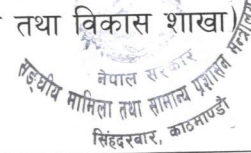 तथा विकास शाखा)
नेपाल सरकार
सङ्घीय मामिला तथा सामान्य प्रशासन मन्त्रालय
सिंहदरबार, काठमाण्डौ